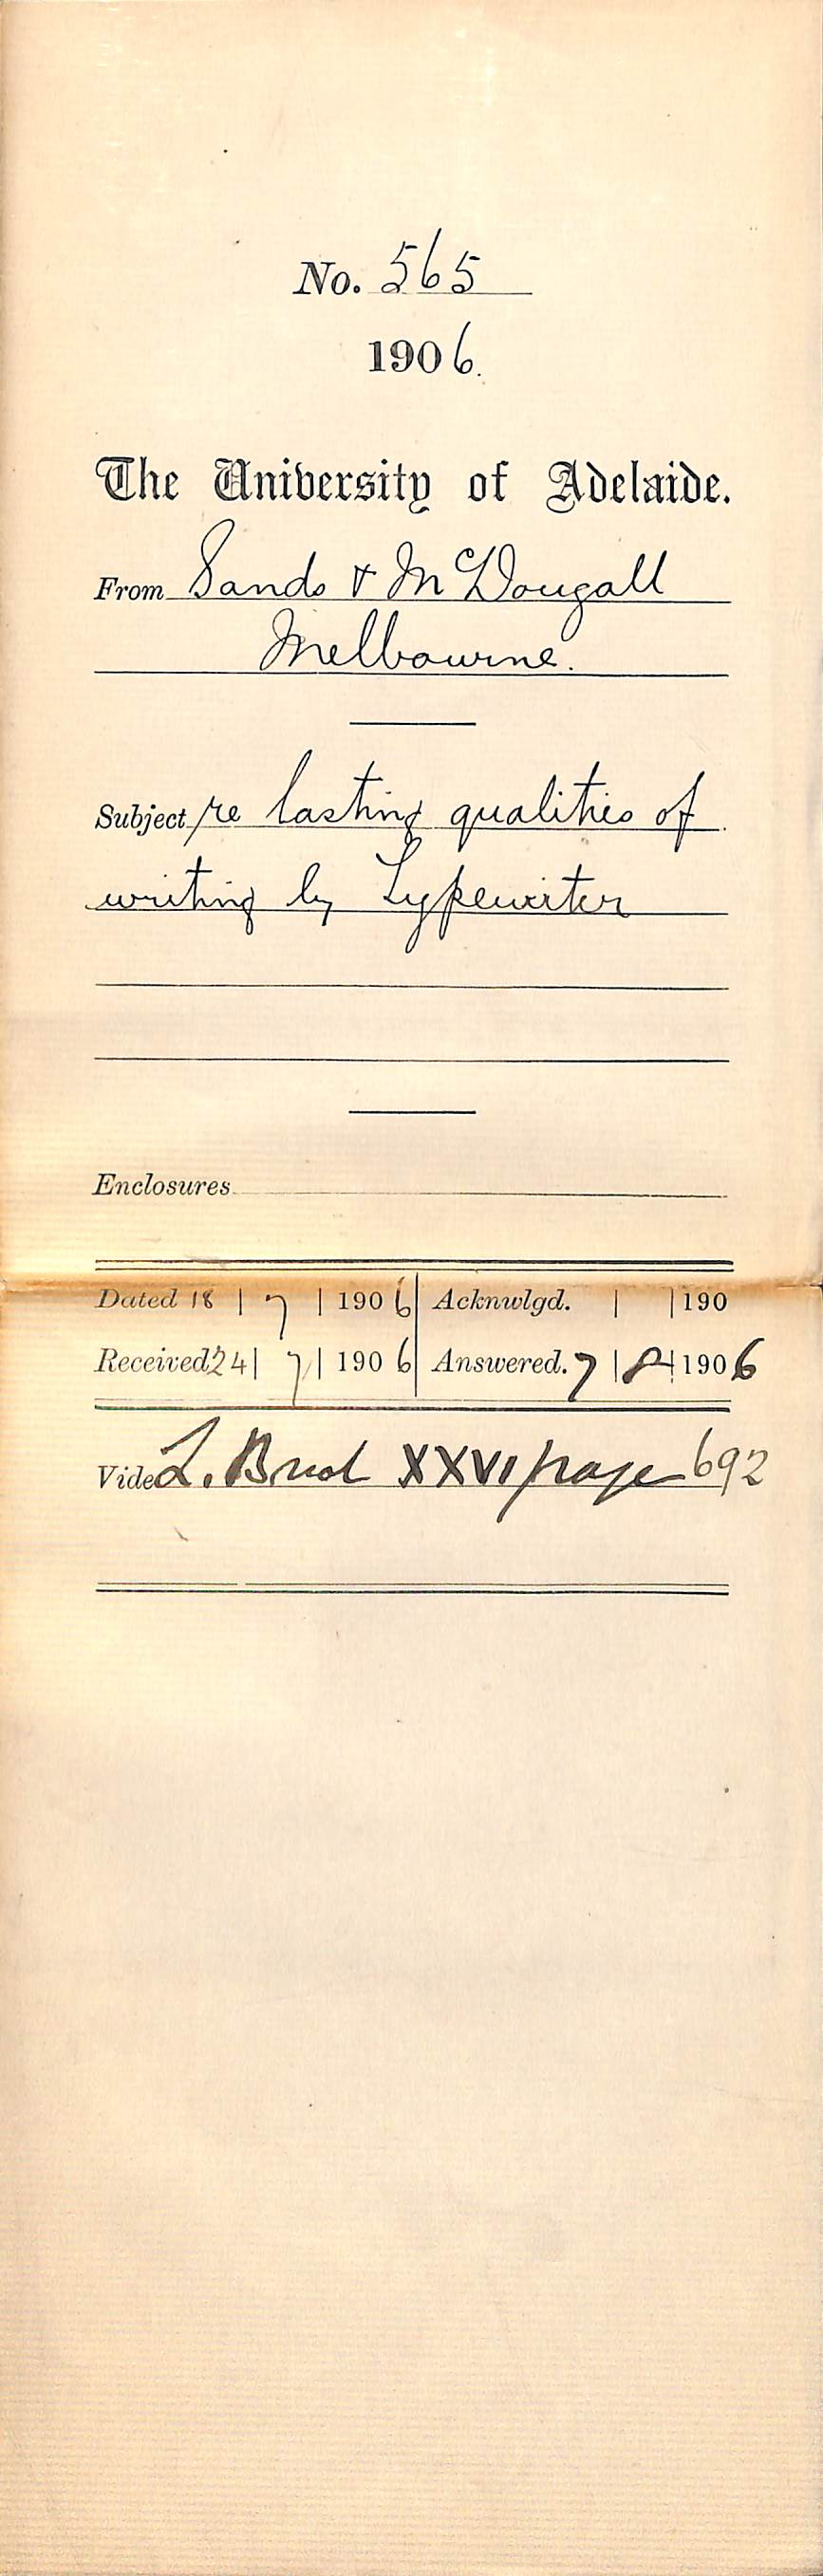 No. 565
1906.
The University of Adelaide.
From Sands & McDougall
Melbourne.
Subject re lasting qualities of
writing by Typewriter
Enclosures
Dated 18 | 7 | 1906 Acknwlgd. | | 190
Received 24 | 7 | 1906 Answered. 7 | 8 | 1906
Vide L. Book XXVI page 692